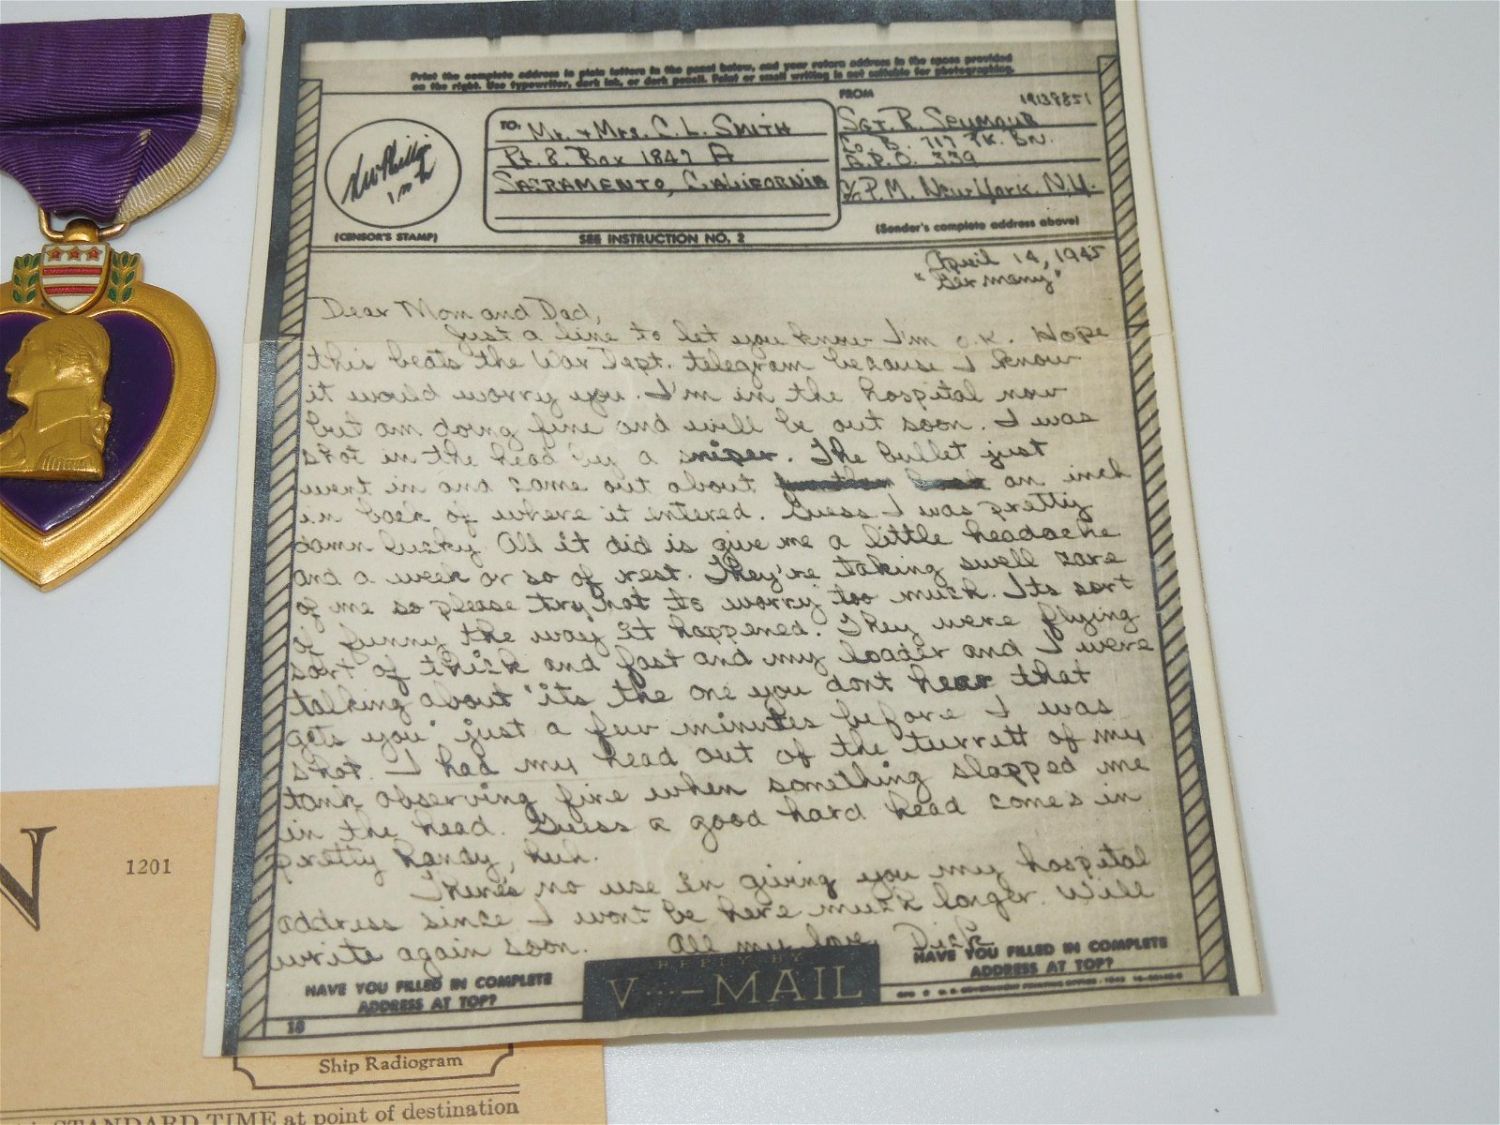 Print the complete address in plain letters in the panel below, and your return address in the space provided
on the right. Use typewriter, dark ink, or dark pencil. Faint or small writing is not suitable for photographing.
FROM
TO:
Mr. + Mrs. C. L. SMITH
Rt. 8. Box 1847 A
SACRAMENTO, CALIFORNIA
19139851
SGT. R. SEYMOUR
Co. B. 717 TK. BN.
A.P.O. 339
c/o P.M. New York. N.Y.
(CENSOR'S STAMP)
SEE INSTRUCTION NO. 2
(Sender's complete address above)
April 14, 1945
"Germany"
Dear Mom and Dad,
Just a line to let you know I'm o.k. Hope
this beats the War Dept. telegram because I know
it would worry you. I'm in the hospital now
but am doing fine and will be out soon. I was
shot in the head by a sniper. The bullet just
went in and came out about an inch
in back of where it entered. Guess I was pretty
damn lucky All it did is give me a little headache
and a week or so of rest. They're taking swell care
of me so please try not to worry too much. Its sort
of funny the way it happened. They were flying
sort of thick and fast and my loader and I were
talking about 'its the one you dont hear that
gets you' just a few minutes before I was
shot. I had my head out of the turrett of my
tank observing fire when something slapped me
in the head. Guess a good hard head comes in
pretty handy, huh.
There's no use in giving you my hospital
address since I wont be here much longer. Will
write again soon. All my love, Dick
HAVE YOU FILLED IN COMPLETE
ADDRESS AT TOP?
REPLY BY
V···—MAIL
HAVE YOU FILLED IN COMPLETE
ADDRESS AT TOP?
16
N
1201
Ship Radiogram
STANDARD TIME at point of destination